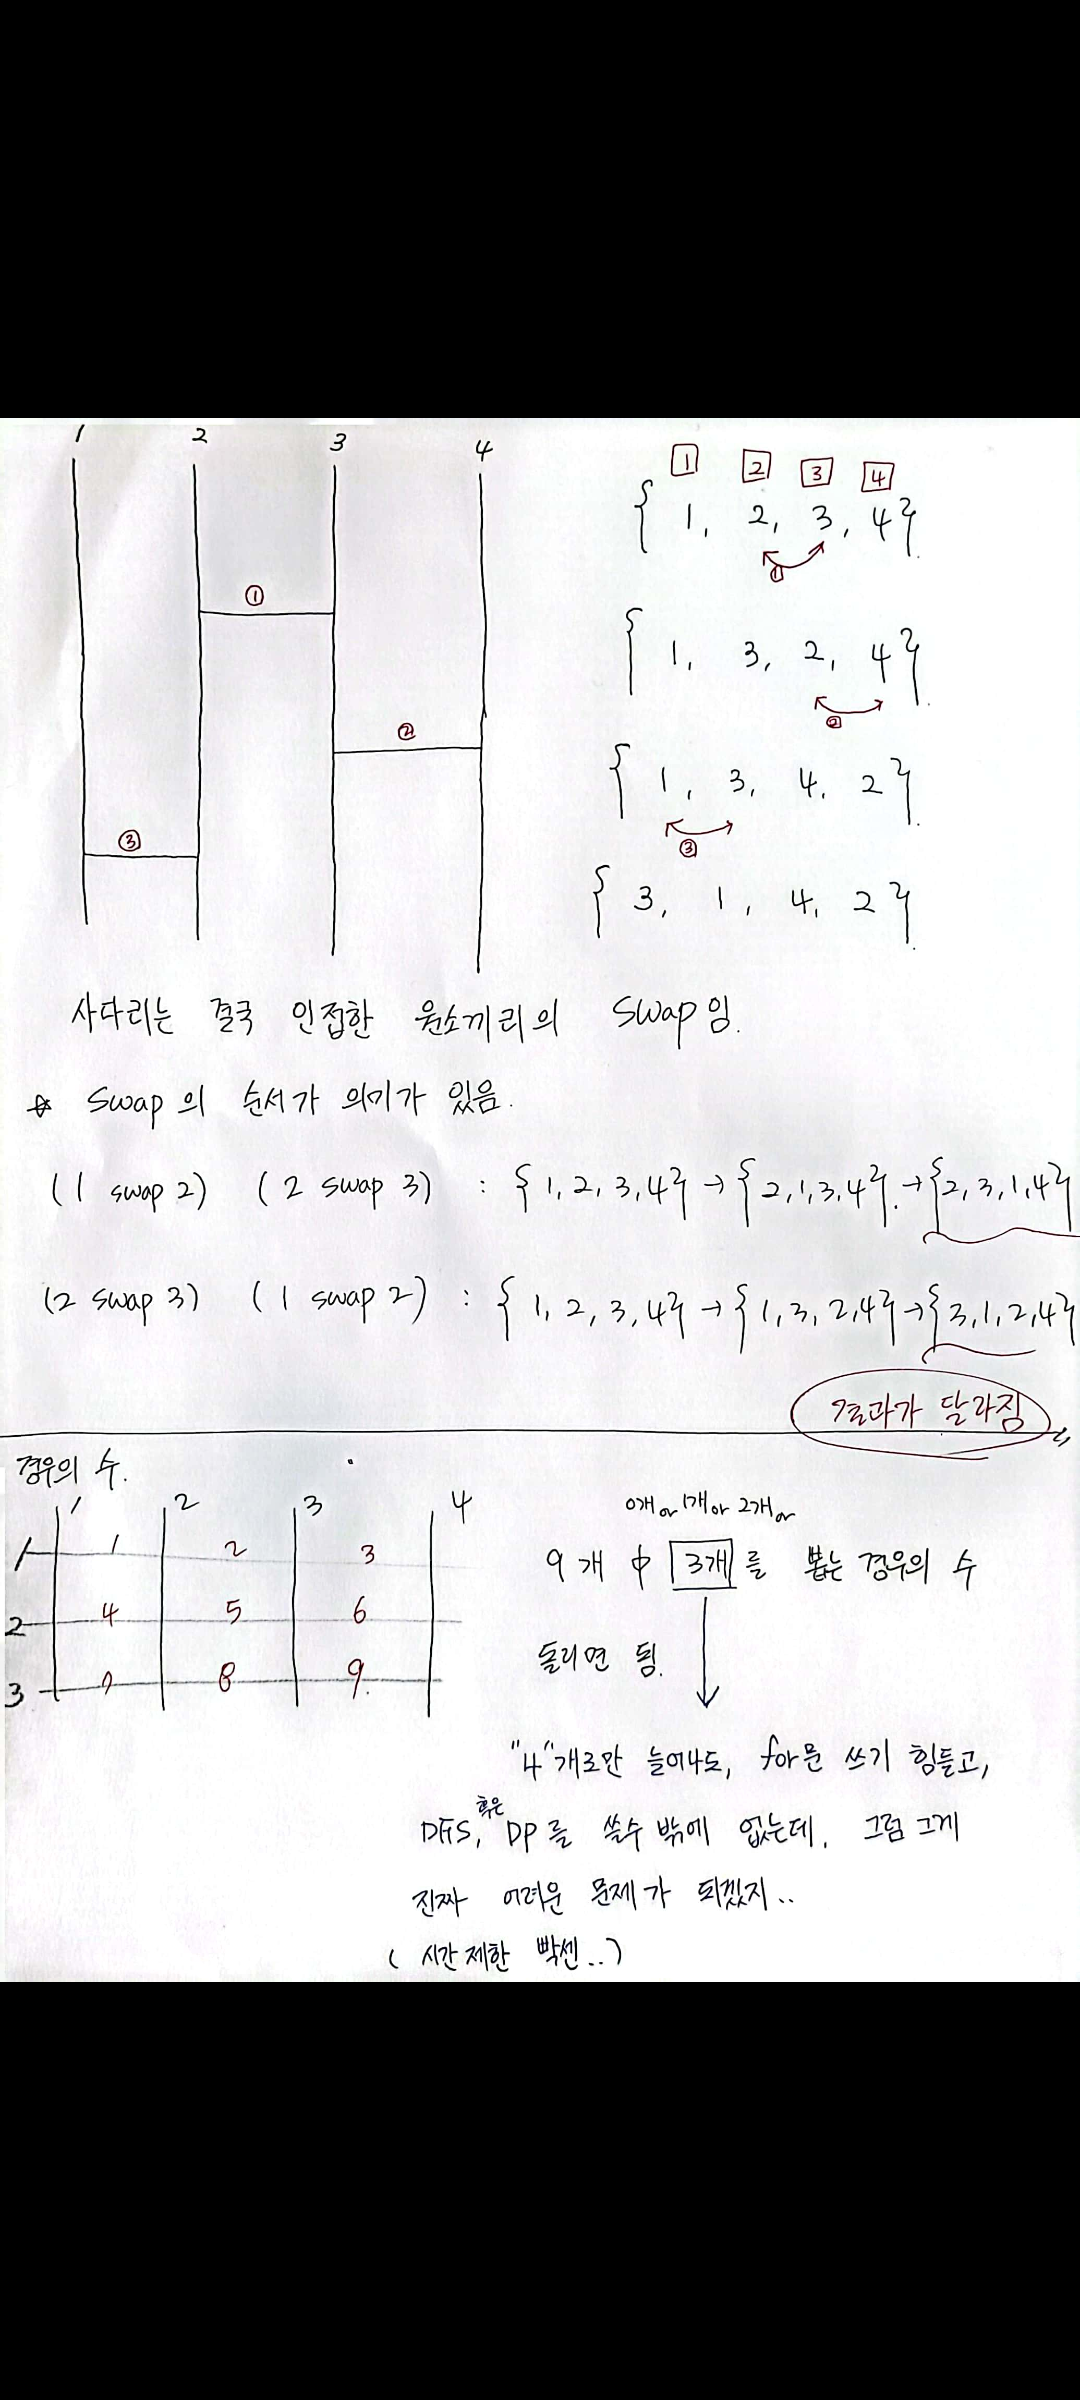 1 2 3 4
①
②
③
1 2 3 4
{ 1, 2, 3, 4 }
①
{ 1, 3, 2, 4 }
②
{ 1, 3, 4, 2 }
③
{ 3, 1, 4, 2 }
사다리는 결국 인접한 원소끼리의 swap임.
☆ swap의 순서가 의미가 있음.
(1 swap 2) (2 swap 3) : { 1, 2, 3, 4 } → { 2, 1, 3, 4 } → { 2, 3, 1, 4 }
(2 swap 3) (1 swap 2) : { 1, 2, 3, 4 } → { 1, 3, 2, 4 } → { 3, 1, 2, 4 }
결과가 달라짐
경우의 수.
1 2 3 4
1 1 2 3
2 4 5 6
3 7 8 9
0개 or 1개 or 2개 or
9개 中 3개를 뽑는 경우의 수
돌리면 됨.
"4"개로만 늘어나도, for문 쓰기 힘들고,
DFS, 혹은 DP를 쓸수 밖에 없는데, 그럼 그게
진짜 어려운 문제가 되겠지..
( 시간 제한 빡센..)